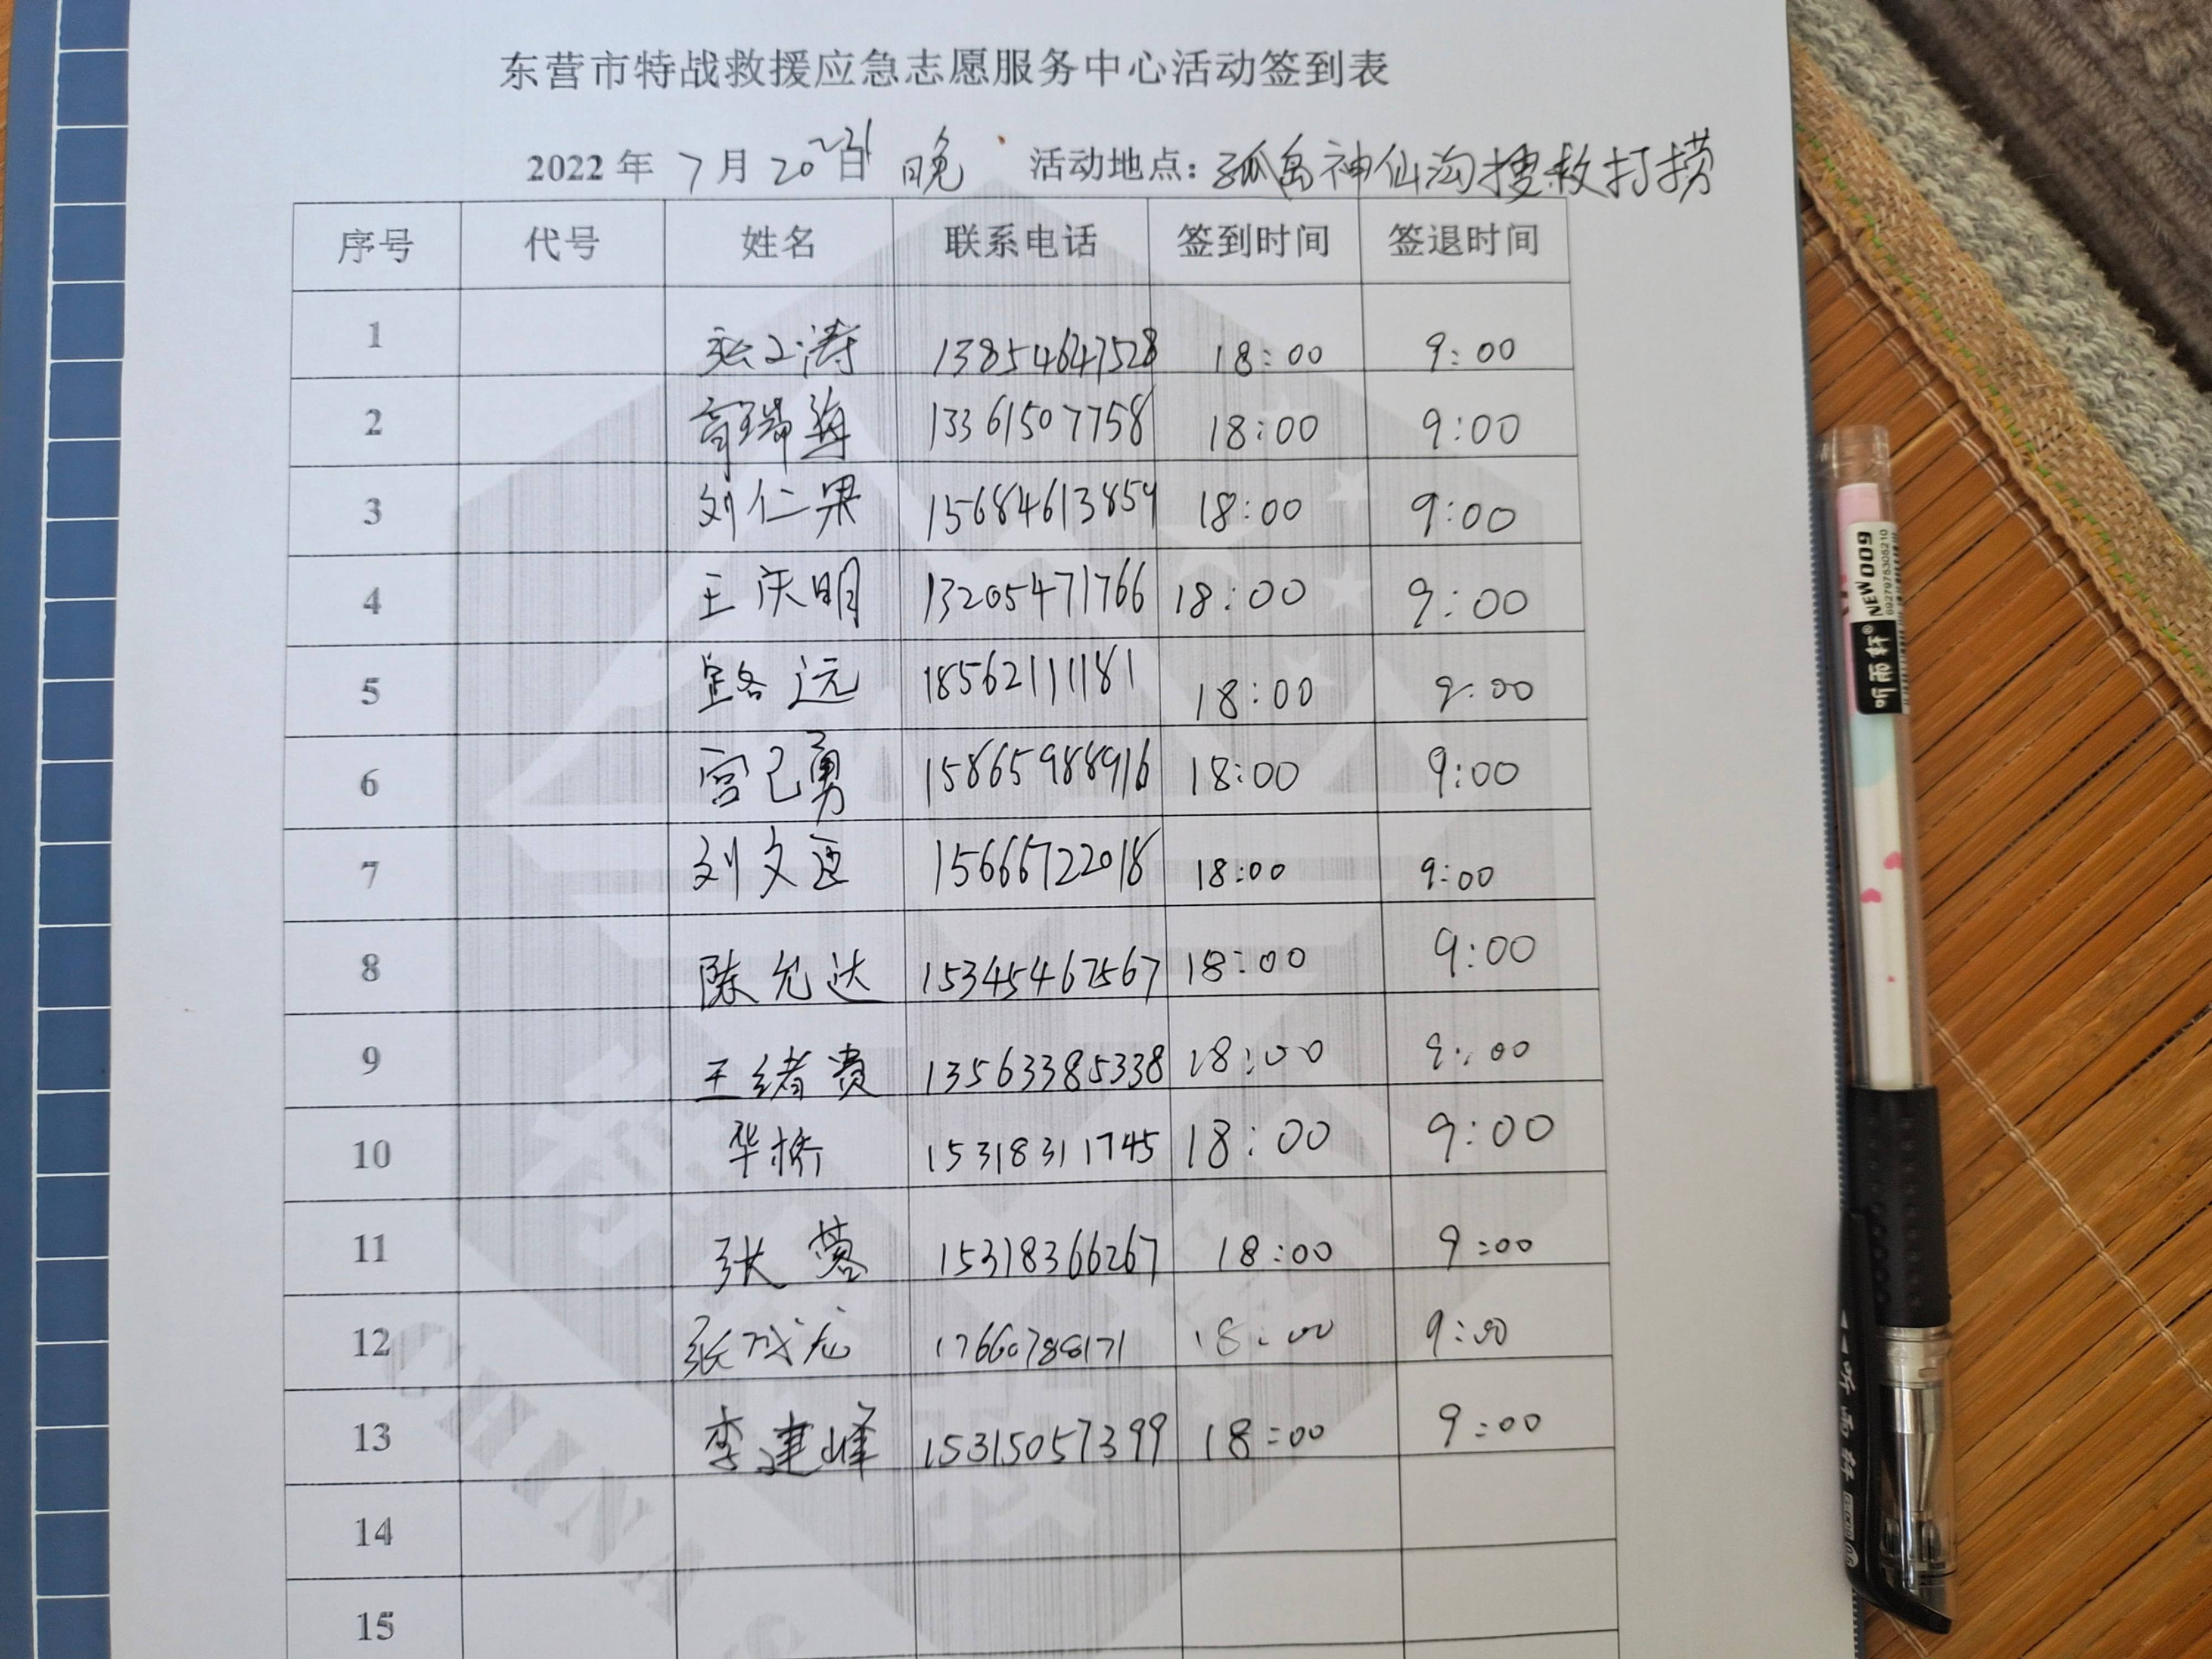 东营市特战救援应急志愿服务中心活动签到表
2022年 7月 20~21日 晚 活动地点：孤岛神仙沟搜救打捞
序号 代号 姓名 联系电话 签到时间 签退时间
1 13854647528 18:00 9:00
2 瑞海 13361507758 18:00 9:00
3 刘仁果 15684613859 18:00 9:00
4 王庆明 13205471766 18:00 9:00
5 路远 18562111181 18:00 9:00
6 宫己勇 15865988916 18:00 9:00
7 刘文 15666722018 18:00 9:00
8 陈允达 15345467567 18:00 9:00
9 王绪贵 13563385338 18:00 9:00
10 华桥 15318311745 18:00 9:00
11 张蓉 15318366267 18:00 9:00
12 张成龙 17660788171 18:00 9:00
13 李建峰 15315057399 18:00 9:00
14
15
CHINA S
听雨轩® NEW 009
6927975305210
听雨轩